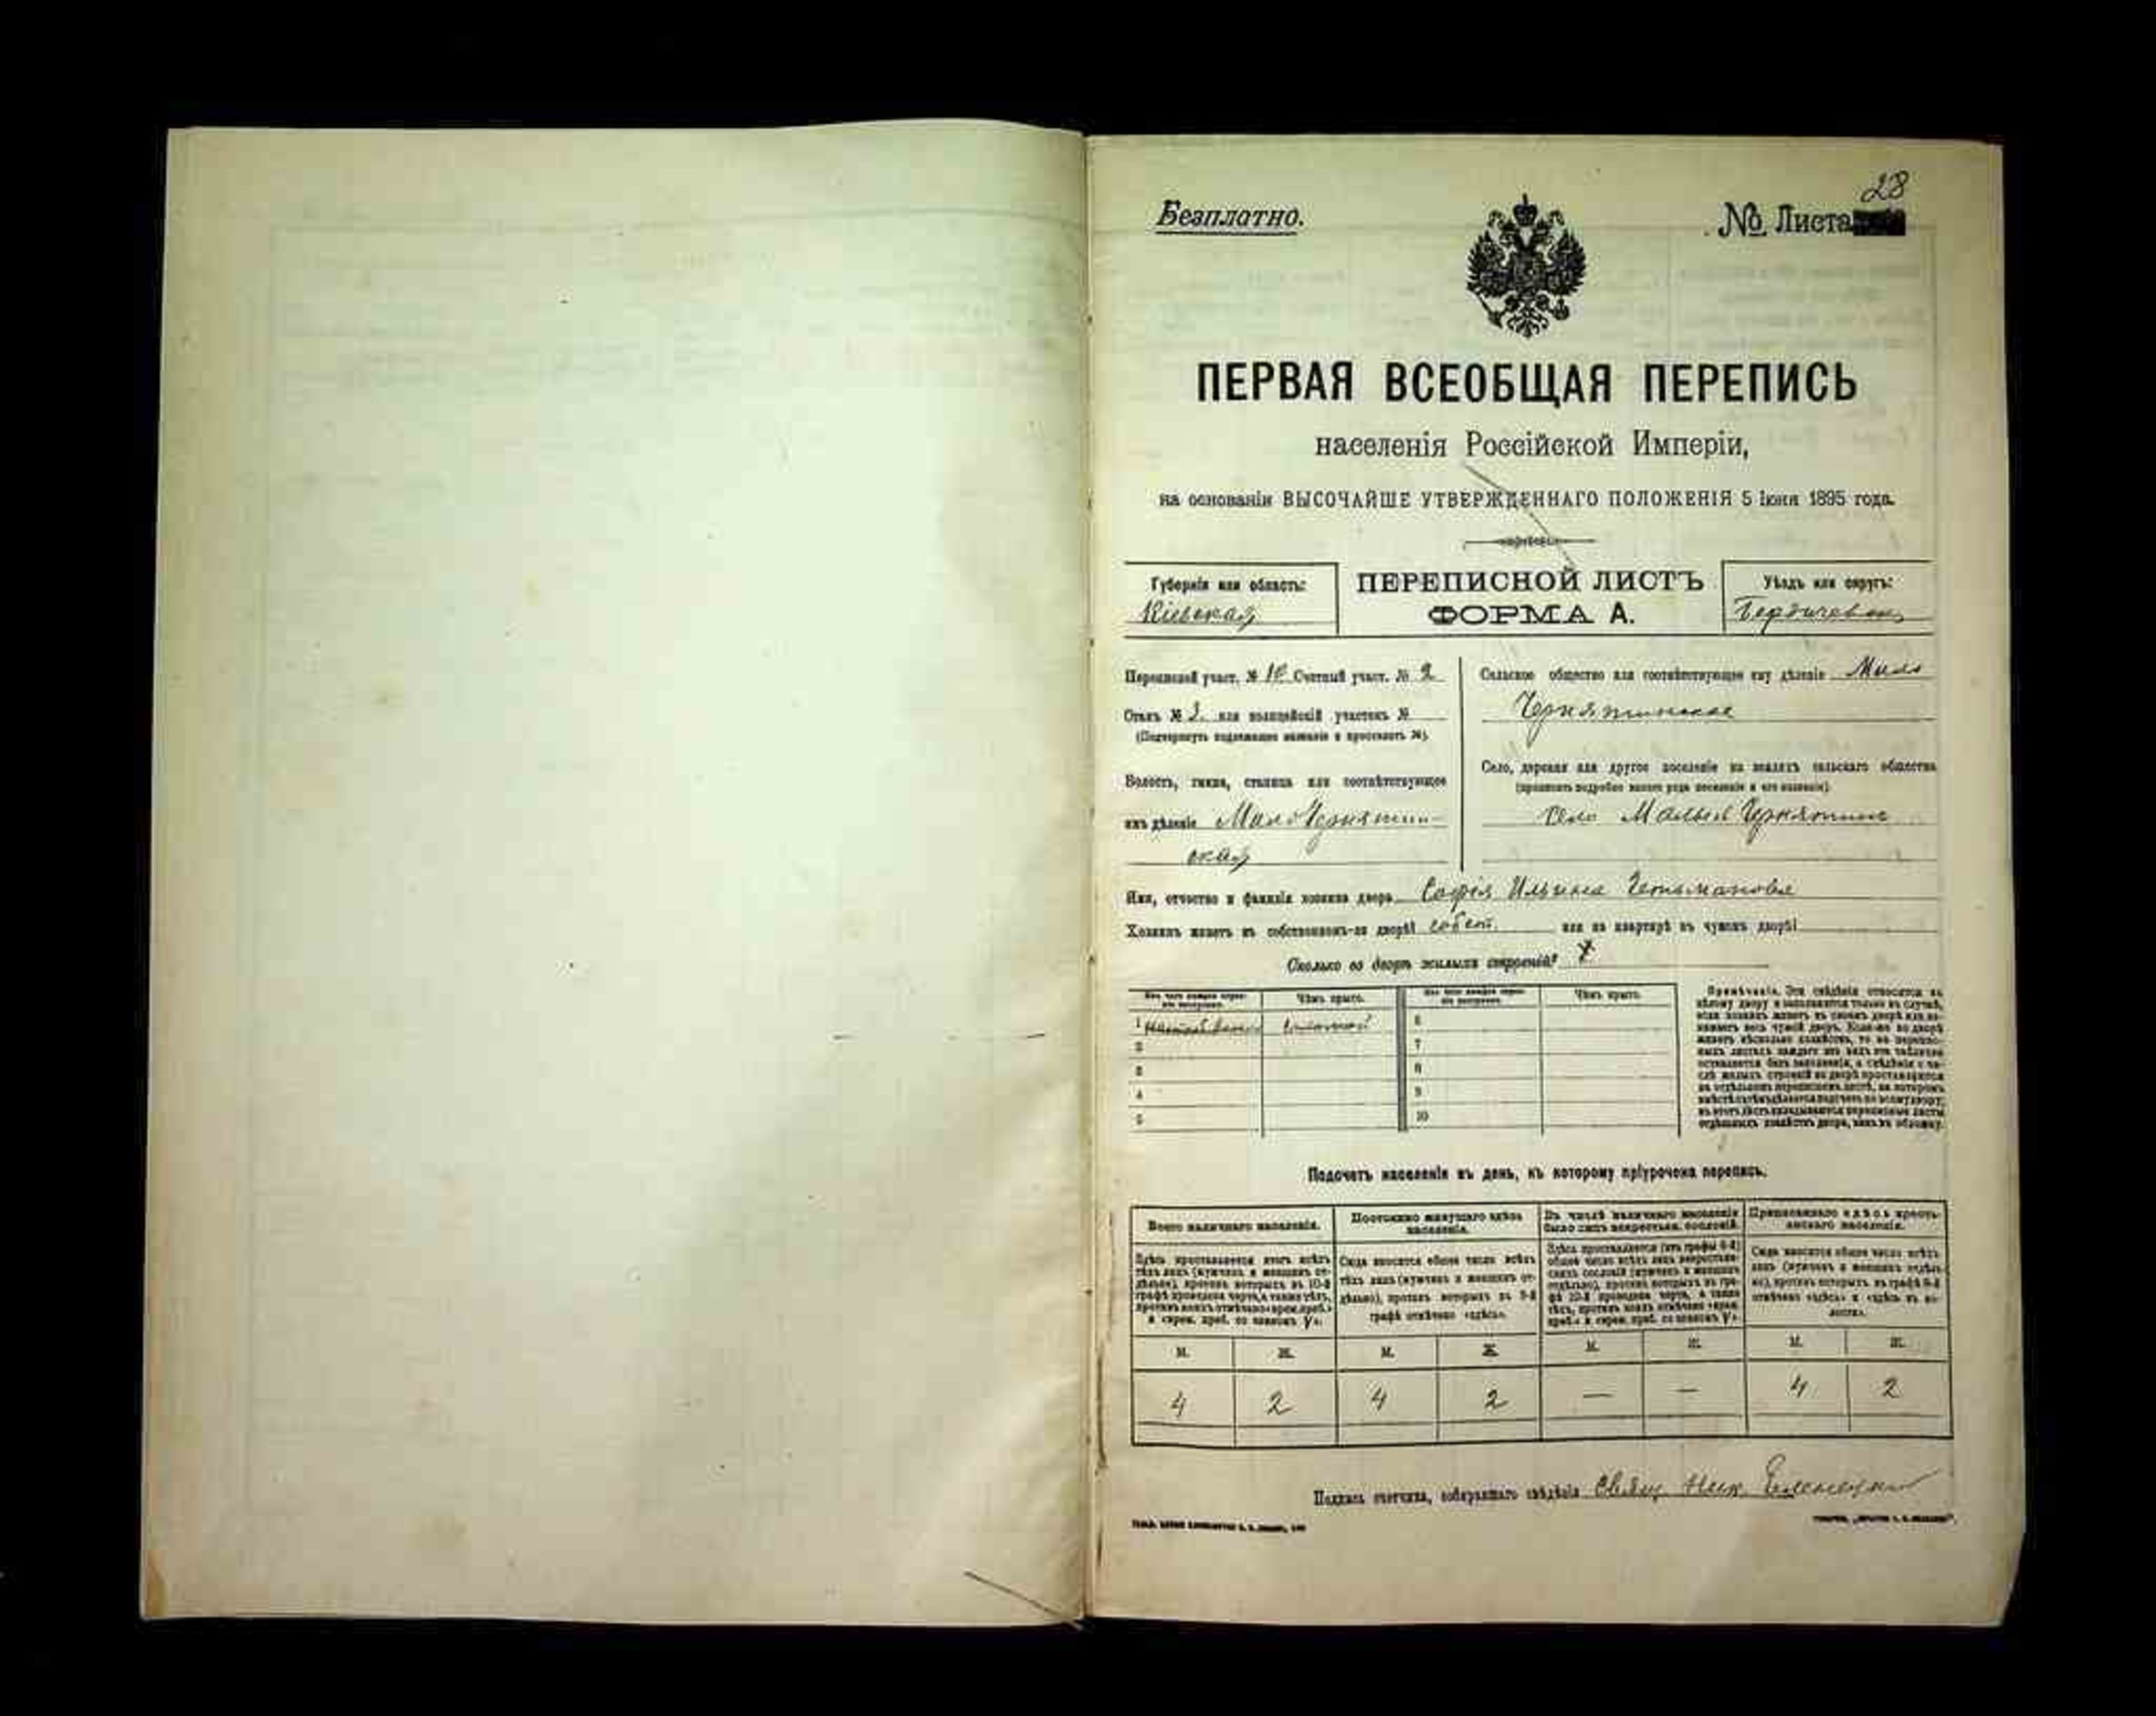 28
Безплатно.
№ Листа
ПЕРВАЯ ВСЕОБЩАЯ ПЕРЕПИСЬ
населенія Россійской Имперіи,
на основаніи ВЫСОЧАЙШЕ УТВЕРЖДЕННАГО ПОЛОЖЕНІЯ 5 Іюня 1895 года.
Губернія или область:
Кіевская
ПЕРЕПИСНОЙ ЛИСТЪ
ФОРМА А.
Уѣздъ или округъ:
Переписной участ. № 10 Счетный участ. № 2
Станъ № 3. или полицейскій участокъ №
(Подчеркнуть подлежащее названіе и проставить №).
Волость, гмина, станица или соотвѣтствующее
имъ дѣленіе МалоЧернятин-
ская
Сельское общество или соотвѣтствующее ему дѣленіе Мало
Чернятинское
Село, деревня или другое поселеніе на земляхъ сельскаго общества
(прописать подробно какого рода поселеніе и его названіе).
село Малый Чернятинъ
Имя, отчество и фамилія хозяина двора Софія Ильина
Хозяинъ живетъ въ собственномъ-ли дворѣ? собст. или на квартирѣ въ чужомъ дворѣ?
Сколько во дворѣ жилыхъ строеній?
Изъ чего каждое строеніе построено. Чѣмъ крыто. Изъ чего каждое строеніе построено. Чѣмъ крыто.
1 соломой 6
2 7
3 8
4 9
5 10
Примѣчаніе. Эти свѣдѣнія относятся къ
цѣлому двору и заполняются только въ случаѣ,
если хозяинъ живетъ въ своемъ дворѣ или за-
нимаетъ весь чужой дворъ. Если-же во дворѣ
живетъ нѣсколько хозяйствъ, то на перепис-
ныхъ листахъ каждаго изъ нихъ эти таблички
оставляются безъ заполненія, а свѣдѣнія о чи-
слѣ жилыхъ строеній во дворѣ проставляются
на отдѣльномъ переписномъ листѣ, на которомъ
въ этотъ листъ вкладываются переписные листы
отдѣльныхъ хозяйствъ двора, какъ въ обложку.
Подсчетъ населенія въ день, къ которому пріурочена перепись.
Всего наличнаго населенія.
Здѣсь проставляется итогъ всѣхъ
тѣхъ лицъ (мужчинъ и женщинъ от-
дѣльно), противъ которыхъ въ 10-й
графѣ проведена черта, а также тѣхъ,
противъ коихъ отмѣчено «врем. преб.»
Постоянно живущаго здѣсь
населенія.
Сюда вносится общее число всѣхъ
тѣхъ лицъ (мужчинъ и женщинъ от-
дѣльно), противъ которыхъ въ 9-й
графѣ отмѣчено «здѣсь».
Въ числѣ наличнаго населенія
было лицъ некрестьян. сословій.
Приписаннаго здѣсь кресть-
янскаго населенія.
Сюда вносится общее число всѣхъ
лицъ (мужчинъ и женщинъ отдѣль-
но), противъ которыхъ въ графѣ 8-й
отмѣчено «здѣсь» и «здѣсь въ во-
лости».
М. Ж. М. Ж. М. Ж. М. Ж.
4 2 4 2 — — 4 2
Подпись счетчика, собиравшаго свѣдѣнія Свящ. Ник.